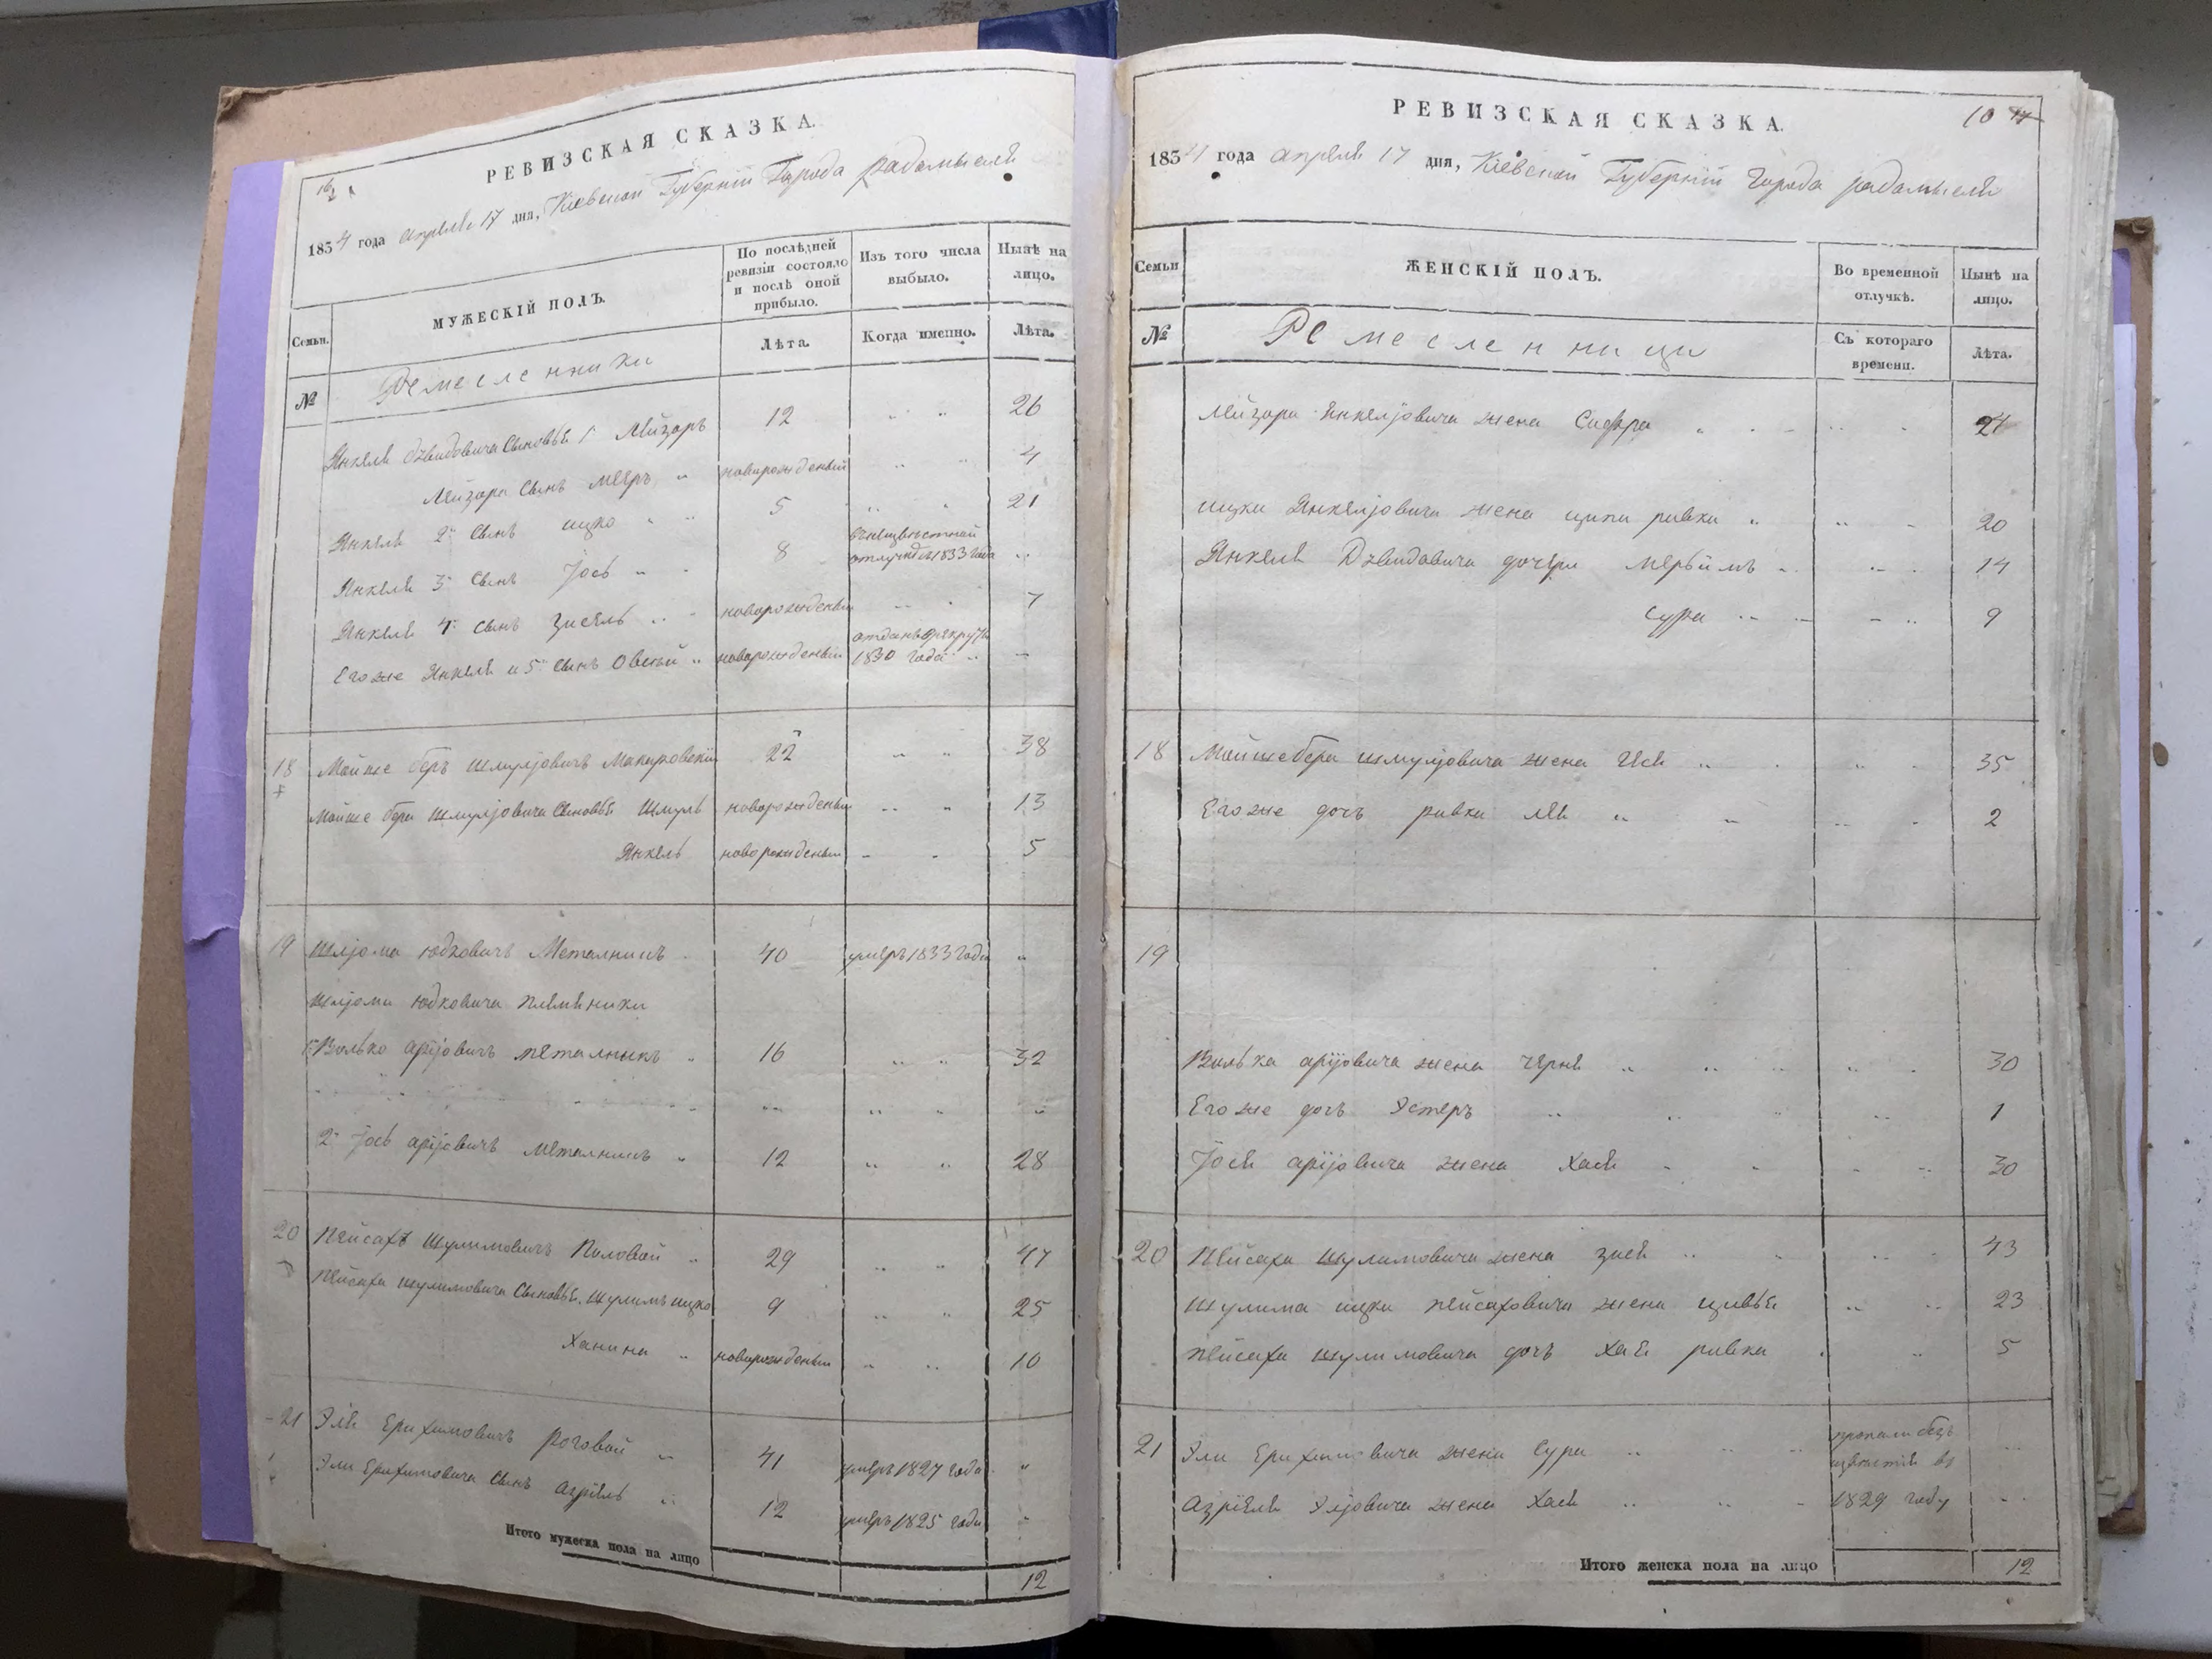 РЕВИЗСКАЯ СКАЗКА.
1834 года апреля 17 дня, Кіевской Губерніи Города Радомысля
Семьи.
МУЖЕСКІЙ ПОЛЪ.
По послѣдней ревизіи состояло и послѣ оной прибыло.
Изъ того числа выбыло.
Нынѣ на лицо.
№
Ремесленники
Лѣта.
Когда именно.
Лѣта.
Янкеля Дзвидовича Сыновья 1 Лейзоръ 12 26
Лейзора Сынъ Меєръ новорожденый 4
Янкеля 2й Сынъ ицко 5 21
Янкеля 3й Сынъ Іось 8 отлучкѣ съ 1833 года
Янкеля 4й Сынъ Зисель новорожденый 7
Егоже Янкеля и 5й Сынъ Овсѣй новорожденый отданъ в рекруты 1830 года
18 Мойше беръ шмулјовичъ Макаровскій 22 38
Мойше бера шмулјовича Сыновья Шмуль новорожденый 13
Янкель новорожденый 5
19 шлјома юдковичъ Металникъ 40 умеръ 1833 года
шлјомы юдковича племяники
1й Волько аріјовичъ металныкъ 16 32
2й Іось аріјовичъ металникъ 12 28
20 Пейсахъ шулимовичъ Половой 29 47
Пейсаха шулимовича Сыновья шулимъ ицко 9 25
Ханина новорожденый 10
21 Эля Ерухимовичъ роговой 41 умеръ 1827 года
Эли Ерухимовича Сынъ азріель 12 умеръ 1825 года
Итого мужеска пола на лицо 12
РЕВИЗСКАЯ СКАЗКА.
10
1834 года апреля 17 дня, Кіевской Губерніи Города радомысля
Семьи
ЖЕНСКІЙ ПОЛЪ.
Во временной отлучкѣ.
Нынѣ на лицо.
№
Ремесленници
Съ котораго времени.
Лѣта.
Лейзора Янкелјовича жена Сифра 24
ицки Янкелјовича жена ципа ривка 20
Янкеля Дзвидовича дочери мерьимъ 14
сура 9
18 Мойше бера шмулјовича жена Ися 35
Егоже дочъ ривка лея 2
19
Волька аріјовича жена черня 30
Егоже дочъ Эстеръ 1
Іося аріјовича жена Хася 30
20 Пейсаха шулимовича жена зися 43
шулима ицки пейсаховича жена цивья 23
пейсаха шулимовича дочъ хая ривка 5
21 Эли Ерухимовича жена Сура пропали безъ извѣстія въ
азріеля Элјовича жена Хася 1829 году
Итого женска пола на лицо 12